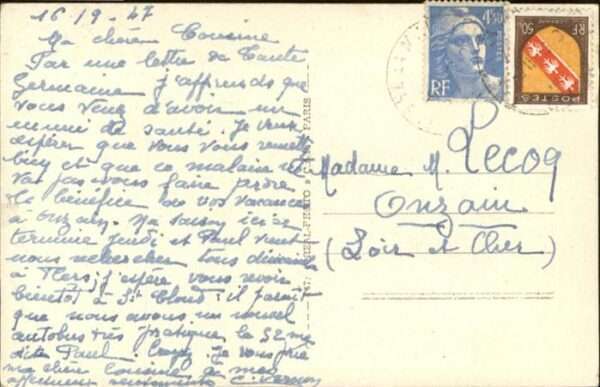 16/9-47
Ma chère Cousine
Par une lettre de Tante
Germaine j'apprends que
vous venez d'avoir un
ennui de santé. Je veux
espérer que vous vous remettez
bien et que ce malaise ne
va pas vous faire perdre
le bénéfice de vos vacances
à Onzain. Ma saison ici se
termine jeudi et Paul vient
nous rechercher tous dimanche
à Flers, j'espère vous revoir
bientôt à St Cloud: il paraît
que nous avons un nouvel
autobus très pratique le 52 me
dit Paul. Je vous prie
ma chère Cousine de mes
affectueux sentiments
4F50
RF
50c
RF
POSTES
Madame M. Lecoq
Onzain
(Loir et Cher)
PARIS